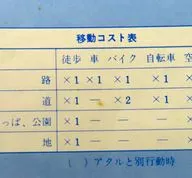 移動コスト表
徒歩 車 バイク 自転車 空
路 ×1 ×1 ×1 ×1 ×
道 ×1 — ×2 ×1 ×
っぱ、公園 ×1 — — — ×
地 ×1 — — — ×
( )アタルと別行動時